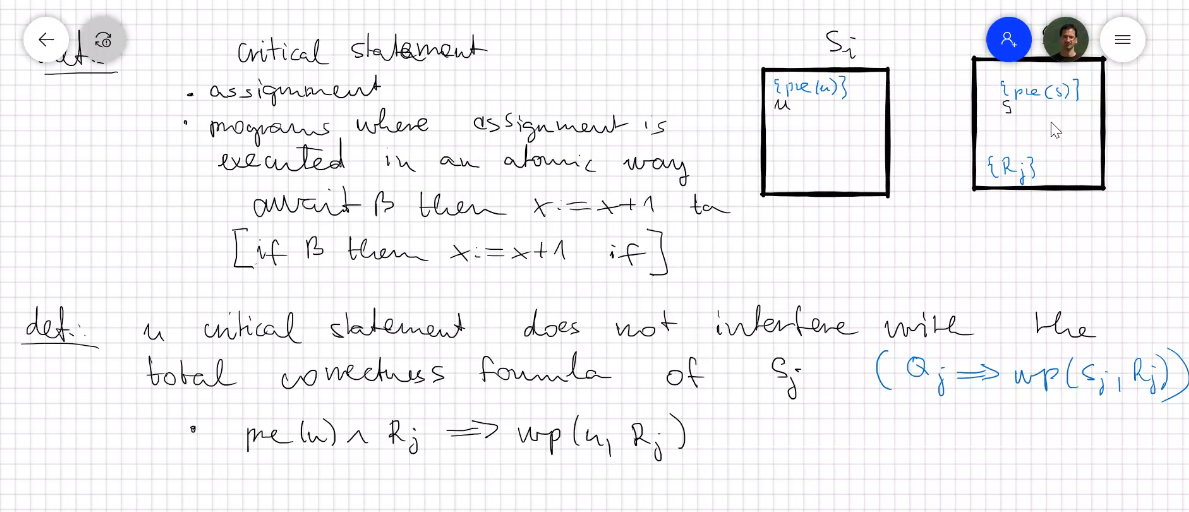 def.:
critical statement
• assignment
• programs where assignment is
executed in an atomic way
await β then x:=x+1 ta
[if β then x:=x+1 if]
Si
{pre(u)}
u
{pre(s)}
s
{Rj}
def.: u critical statement does not interfere with the
total correctness formula of Sj (Qj ⟹ wp(Sj, Rj))
• pre(u) ∧ Rj ⟹ wp(u, Rj)